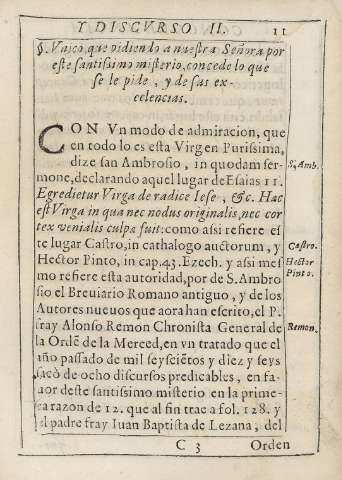 Y DISCVRSO II. 11
§. Vajco, que pidiendo a nuestra Señora por
este santissimo misterio, concede lo que
se le pide, y de sus ex-
celencias.
CON Vn modo de admiracion, que
en todo lo es esta Virgen Purissima,
dize san Ambrosio, in quodam ser- S. Amb.
mone, declarando aquel lugar de Esaias 11.
Egredietur Virga de radice Iese, &c. Hæc
est Virga in qua nec nodus originalis, nec cor
tex venialis culpa fuit: como assi refiere es
te lugar Castro, in cathalogo auctorum, y Castro.
Hector Pinto, in cap. 43. Ezech. y assi mes Hector
mo refiere esta autoridad, por de S. Ambro Pinto.
sio el Breuiario Romano antiguo, y de los
Autores nueuos que aora han escrito, el P.
fray Alonso Remon Chronista General de Remon.
la Ordẽ de la Merced, en vn tratado que el
año passado de mil seyscientos y diez y seys
sacò de ocho discursos predicables, en fa-
uor deste santissimo misterio en la prime-
ra razon de 12. que al fin trae a fol. 128. y
el padre fray Iuan Baptista de Lezana, del
C 3 Orden